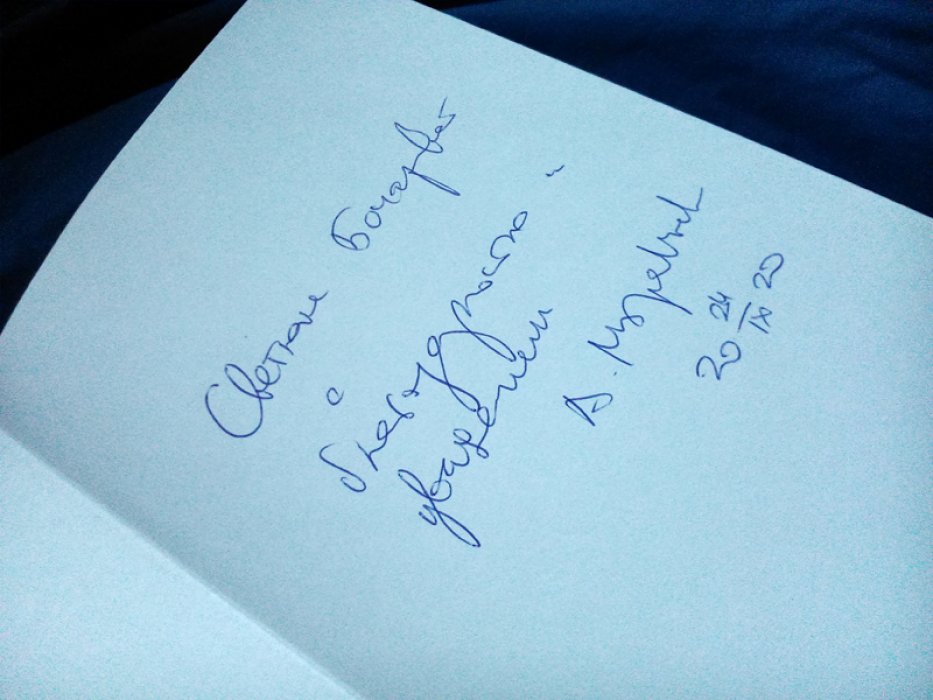 Светлане Бочаровой
с
благодарностью и
уважением
20 24/IX 20